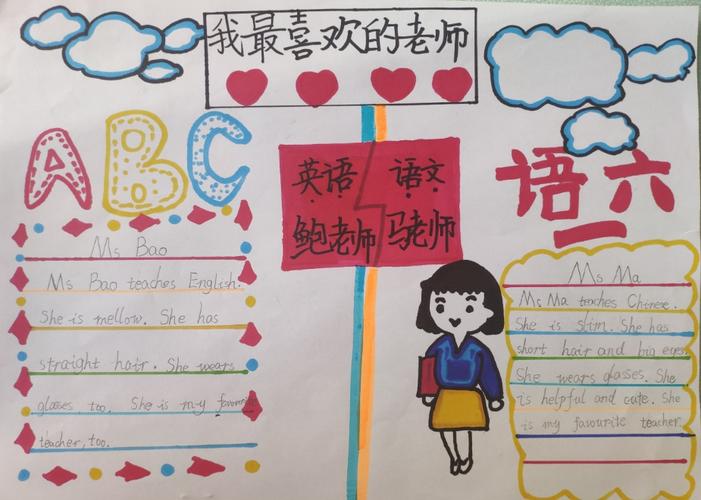 我最喜欢的老师
ABC
英语 语文
鲍老师 马老师
语六一
Ms Bao
Ms Bao teaches English.
She is mellow. She has
straight hair. She wears
glasses too. She is my favourite
teacher, too.
Ms Ma
Ms Ma teaches Chinese.
She is slim. She has
short hair and big eyes.
She wears glasses. She
is helpful and cute. She
is my favourite teacher.